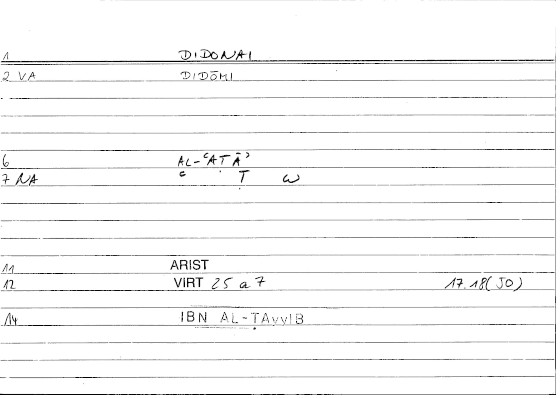 1 DIDONAI
2 VA DIDŌMI
6 AL-ʿAṬĀʾ
7 NA ʿ Ṭ W
11 ARIST
12 VIRT 25 a 7 17.18(JO)
14 IBN AL-ṬAyyIB